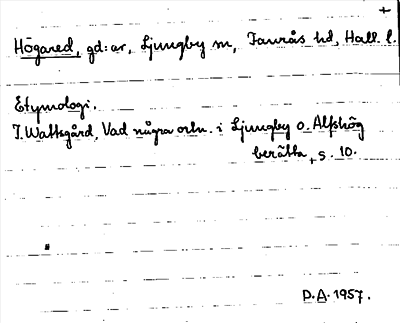 +
Högared, gd:ar, Ljungby sn, Faurås hd, Hall. l.
Etymologi.
J. Wattsgård, Vad några ortn. i Ljungby o. Alfshög
berätta, s. 10.
D.A. 1957.